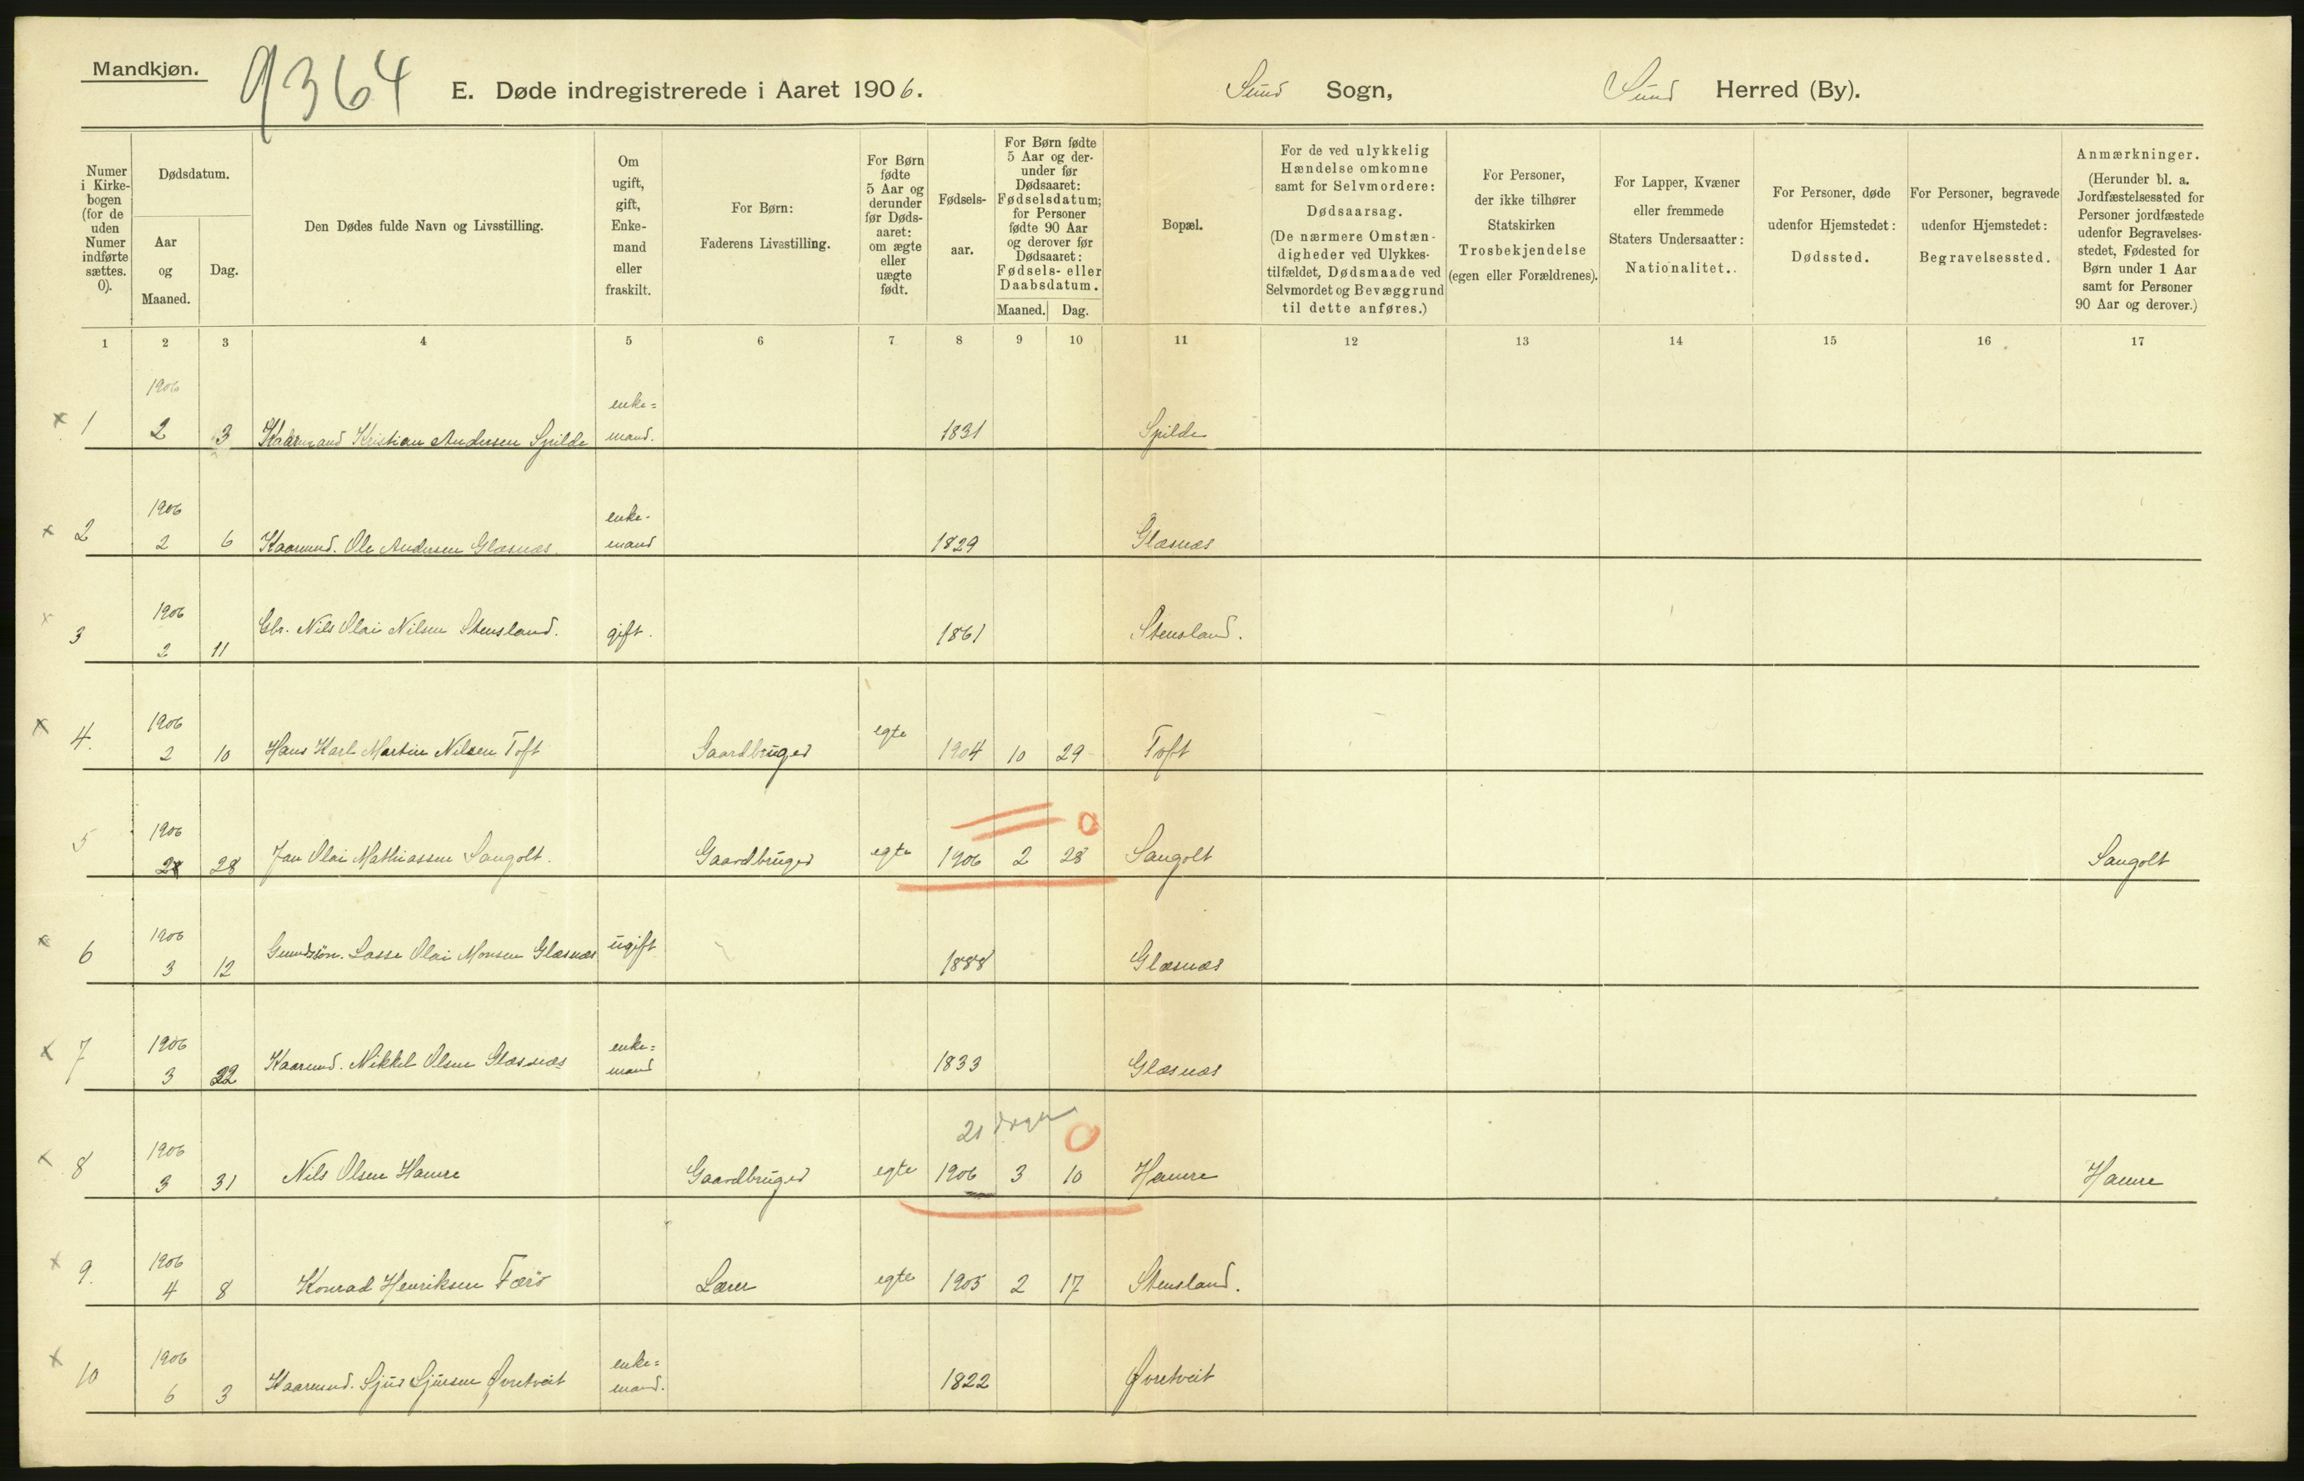 Mandkjøn.
9364
E. Døde indregistrerede i Aaret 1906. Sund Sogn, Sund Herred (By).
Numer i Kirkebogen (for de uden Numer indførte sættes. 0).
Dødsdatum.
Aar og Maaned.
Dag.
Den Dødes fulde Navn og Livsstilling.
Om ugift, gift, Enkemand eller fraskilt.
For Børn: Faderens Livsstilling.
For Børn fødte 5 Aar og derunder før Dødsaaret: om ægte eller uægte født.
Fødselsaar.
For Børn fødte 5 Aar og derunder før Dødsaaret: Fødselsdatum; for Personer fødte 90 Aar og derover før Dødsaaret: Fødsels- eller Daabsdatum.
Maaned. Dag.
Bopæl.
For de ved ulykkelig Hændelse omkomne samt for Selvmordere: Dødsaarsag. (De nærmere Omstændigheder ved Ulykkestilfældet, Dødsmaade ved Selvmordet og Bevæggrund til dette anføres.)
For Personer, der ikke tilhører Statskirken Trosbekjendelse (egen eller Forældrenes).
For Lapper, Kvæner eller fremmede Staters Undersaatter: Nationalitet.
For Personer, døde udenfor Hjemstedet: Dødssted.
For Personer, begravede udenfor Hjemstedet: Begravelsessted.
Anmærkninger. (Herunder bl. a. Jordfæstelsessted for Personer jordfæstede udenfor Begravelsesstedet, Fødested for Børn under 1 Aar samt for Personer 90 Aar og derover.)
1 2 3 4 5 6 7 8 9 10 11 12 13 14 15 16 17
x 1 1906 2 3 Kaarmand Kristian Andersen Spilde enke=mand. 1831 Spilde
x 2 1906 2 6 Kaarmd. Ole Andersen Glæsnæs enke-mand 1829 Glæsnæs
x 3 1906 2 11 Gbr. Nils Olai Nilsen Stensland. gift. 1861 Stensland.
x 4. 1906 2 10 Hans Karl Martin Nilsen Toft Gaardbruger egte 1904 10 29 Toft
5 1906 2 28 Jan Olai Mathiassen Sangolt. Gaardbruger egte 1906 2 28 0 Sangolt Sangolt
x 6 1906 3 12 Lasse Olai Monsen Glæsnæs ugift 1888 Glæsnæs
x 7 1906 3 22 Kaarmd. Mikkel Olsen Glæsnæs enke=mand 1833 Glæsnæs
21 Dage 0
x 8 1906 3 31 Nils Olsen Hamre Gaardbruger egte 1906 3 10 Hamre Hamre
x 9. 1906 4 8 Konrad Henriksen Færö Lærer egte 1905 2 17 Stensland.
x 10 1906 6 3 Kaarmd. Sjur Sjursen Øvretveit enke=mand. 1822 Øvretveit